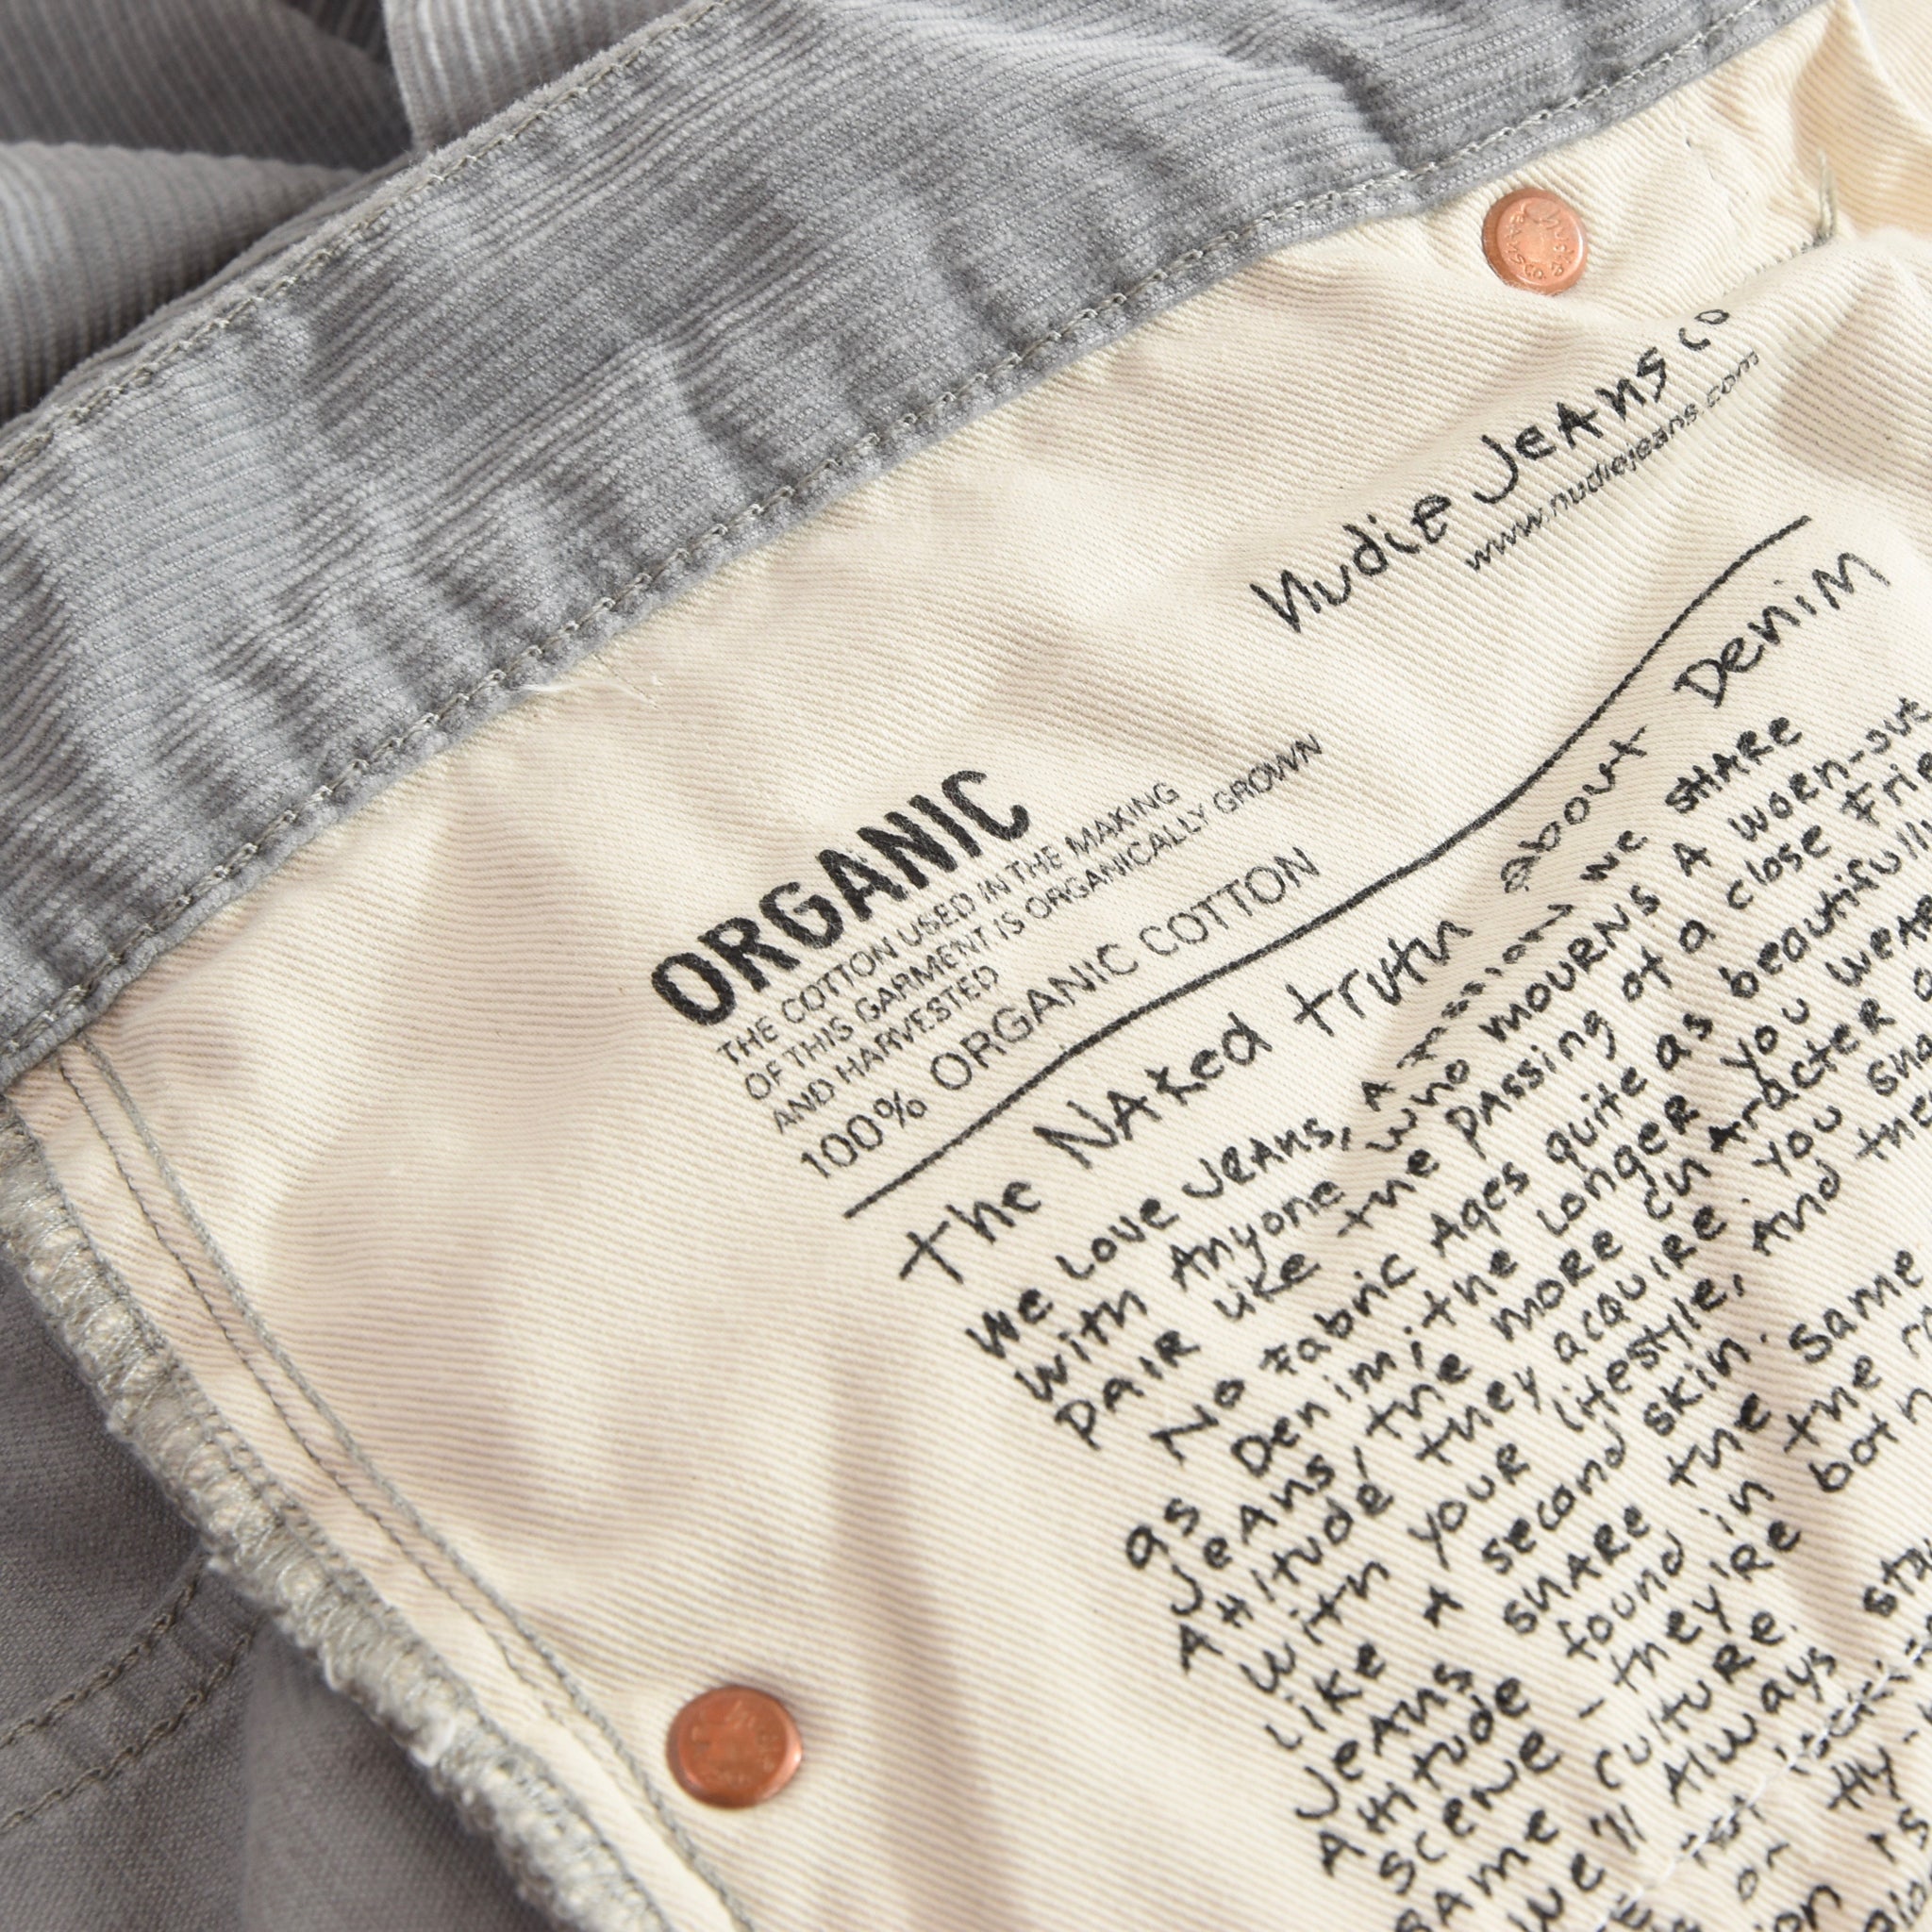 Nudie Jeans co
www.nudiejeans.com
ORGANIC
THE COTTON USED IN THE MAKING
OF THIS GARMENT IS ORGANICALLY GROWN
AND HARVESTED
100% ORGANIC COTTON
the Naked truth about Denim
We Love Jeans, A passion we share
with Anyone who mourns A worn-out
pair like the passing of a close
No Fabric Ages quite as beautifully
as Denim; the Longer you wear
Jeans, the more character
Attitude they acquire. You
with your lifestyle, and
Like A second skin.
Jeans share the same
Attitude found in the
scene - they're both
same culture.
we'll Always
or
is